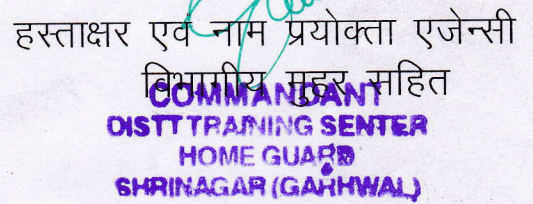 हस्ताक्षर एवं नाम प्रयोक्ता एजेन्सी
विभागीय मुहर सहित
COMMANDANT
DISTT TRAINING SENTER
HOME GUARD
SHRINAGAR (GARHWAL)